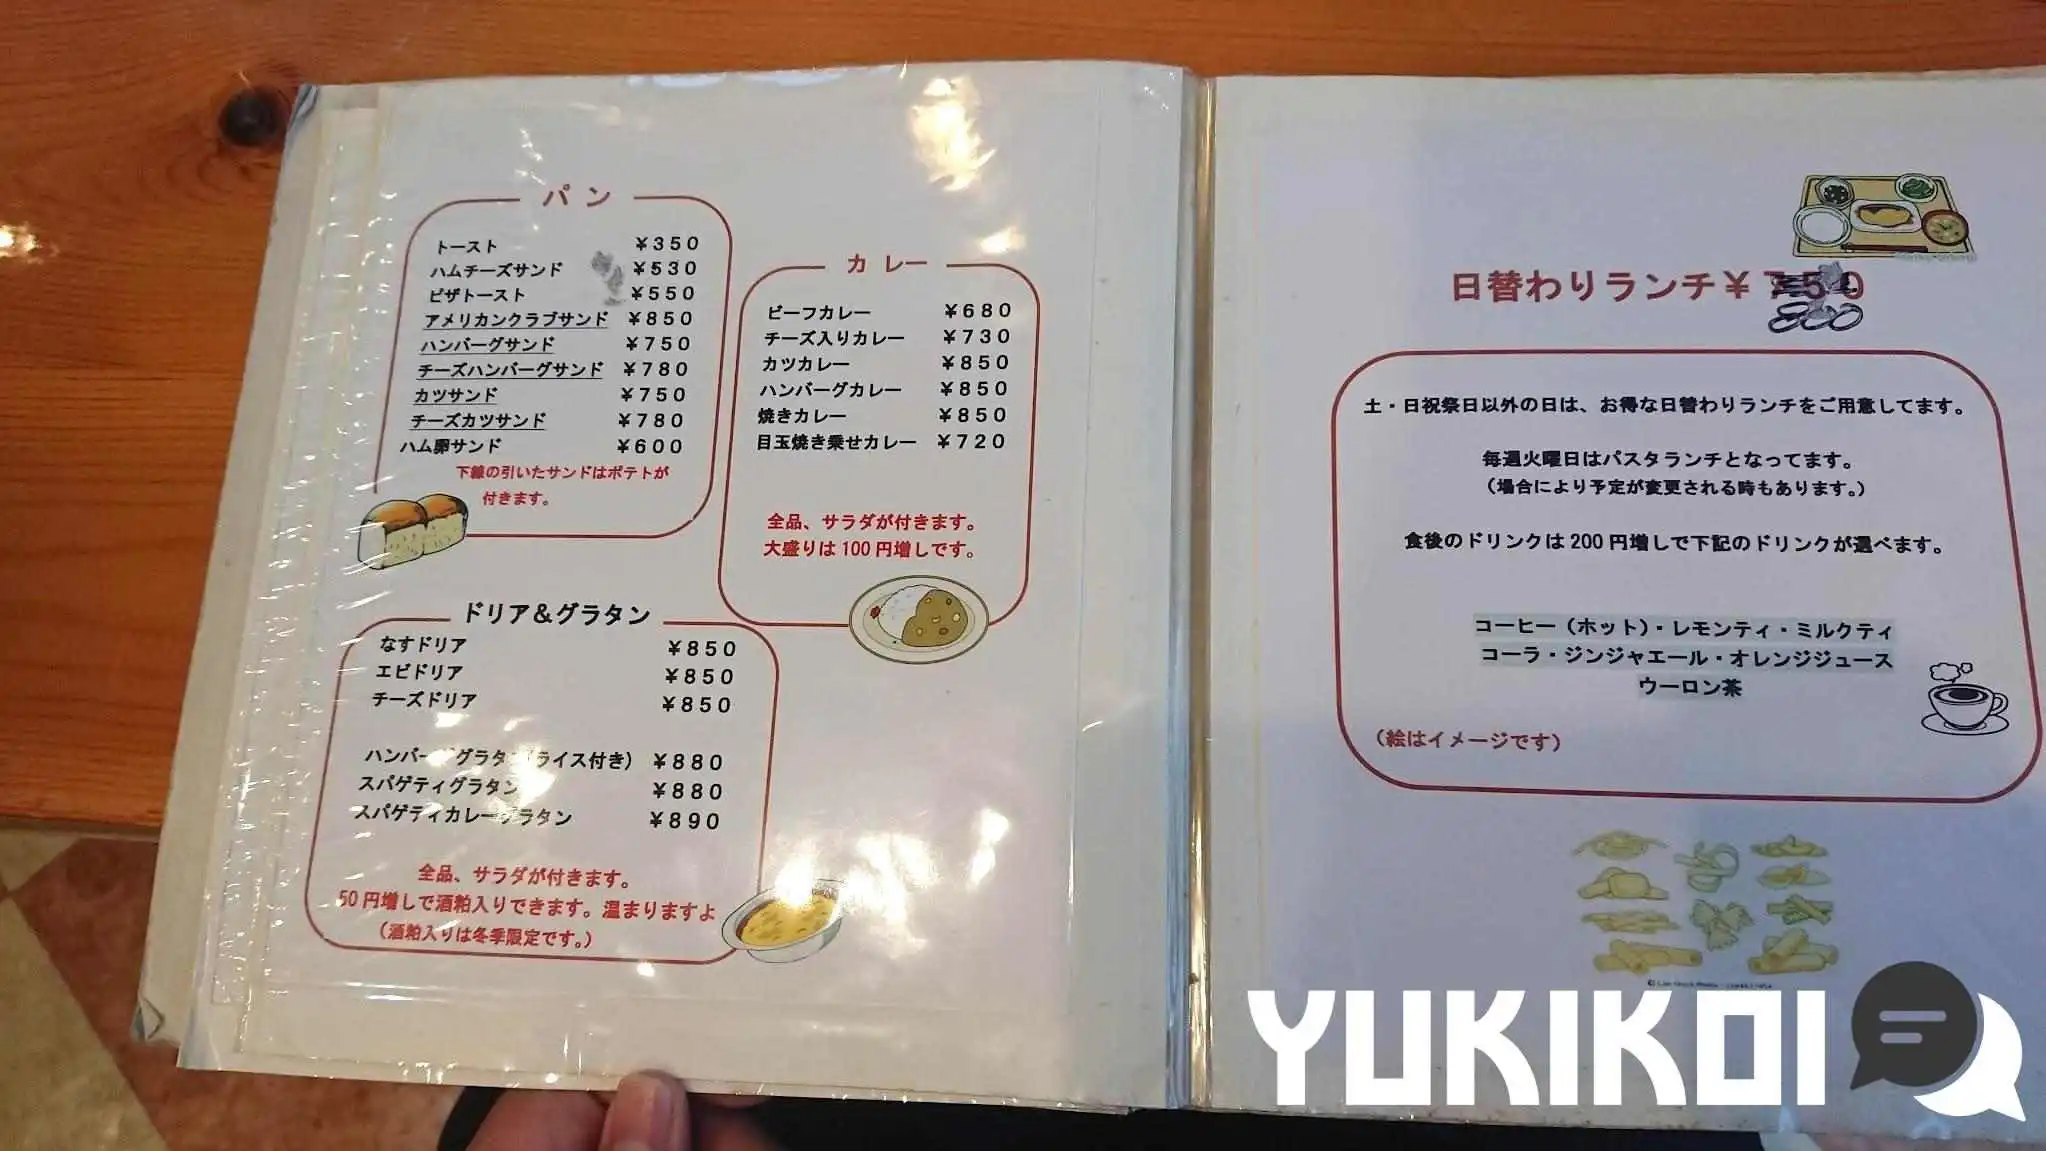 パン
トースト ¥350
ハムチーズサンド ¥530
ピザトースト ¥550
アメリカンクラブサンド ¥850
ハンバーグサンド ¥750
チーズハンバーグサンド ¥780
カツサンド ¥750
チーズカツサンド ¥780
ハム卵サンド ¥600
下線の引いたサンドはポテトが
付きます。
カレー
ビーフカレー ¥680
チーズ入りカレー ¥730
カツカレー ¥850
ハンバーグカレー ¥850
焼きカレー ¥850
目玉焼き乗せカレー ¥720
全品、サラダが付きます。
大盛りは100円増しです。
ドリア&グラタン
なすドリア ¥850
エビドリア ¥850
チーズドリア ¥850
ハンバーググラタン(ライス付き) ¥880
スパゲティグラタン ¥880
スパゲティカレーグラタン ¥890
全品、サラダが付きます。
50円増しで酒粕入りできます。温まりますよ
(酒粕入りは冬季限定です。)
日替わりランチ¥750
800
土・日祝祭日以外の日は、お得な日替わりランチをご用意してます。
毎週火曜日はパスタランチとなってます。
(場合により予定が変更される時もあります。)
食後のドリンクは200円増しで下記のドリンクが選べます。
コーヒー(ホット)・レモンティ・ミルクティ
コーラ・ジンジャエール・オレンジジュース
ウーロン茶
(絵はイメージです)
YUKIKOI